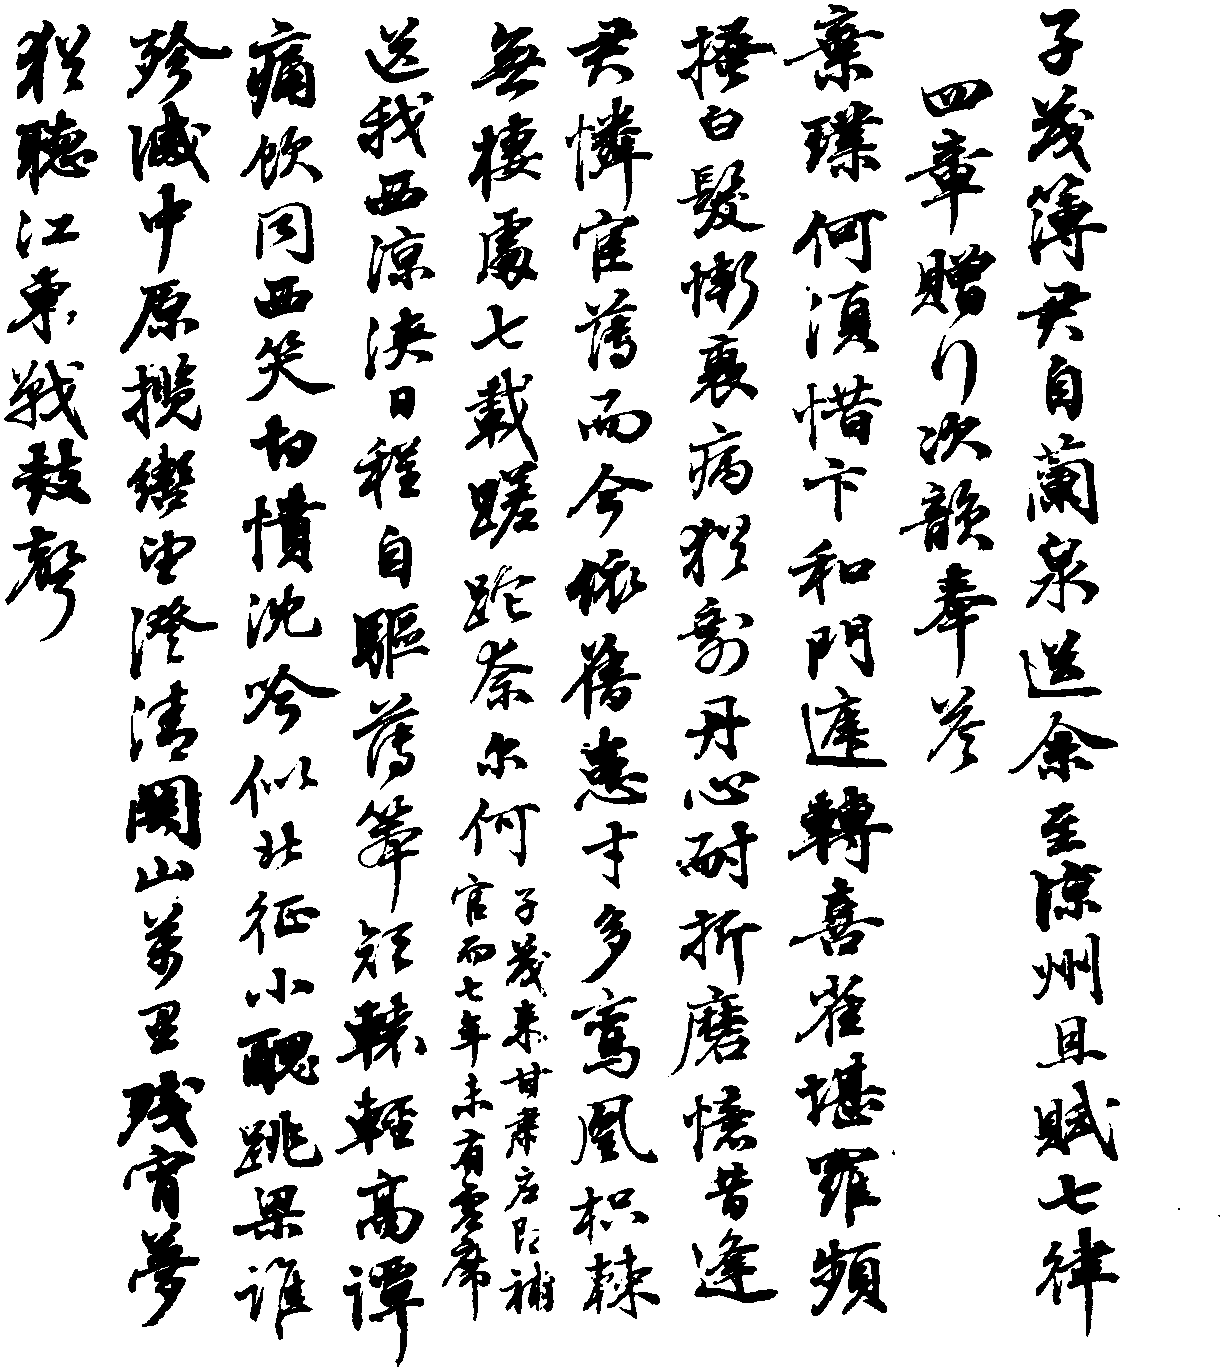 子茂簿君自蘭泉送余至涼州且賦七律
四章贈行次韻奉答
棄璞何須惜卞和門庭轉喜雀堪羅頻
搔白髮慚衰病猶剩丹心耐折磨憶昔逢
君憐宦薄而今依舊患才多鸞凰枳棘
無棲處七載蹉跎奈尔何
子茂來甘肅后即補
官而七年未有虛席
送我西涼浹日程自驅薄笨短轅輕高譚
痛飲同西笑切憤沈吟似北征小醜跳梁誰
殄滅中原攬轡望澄清關山萬里殘宵夢
猶聽江東戰鼓聲